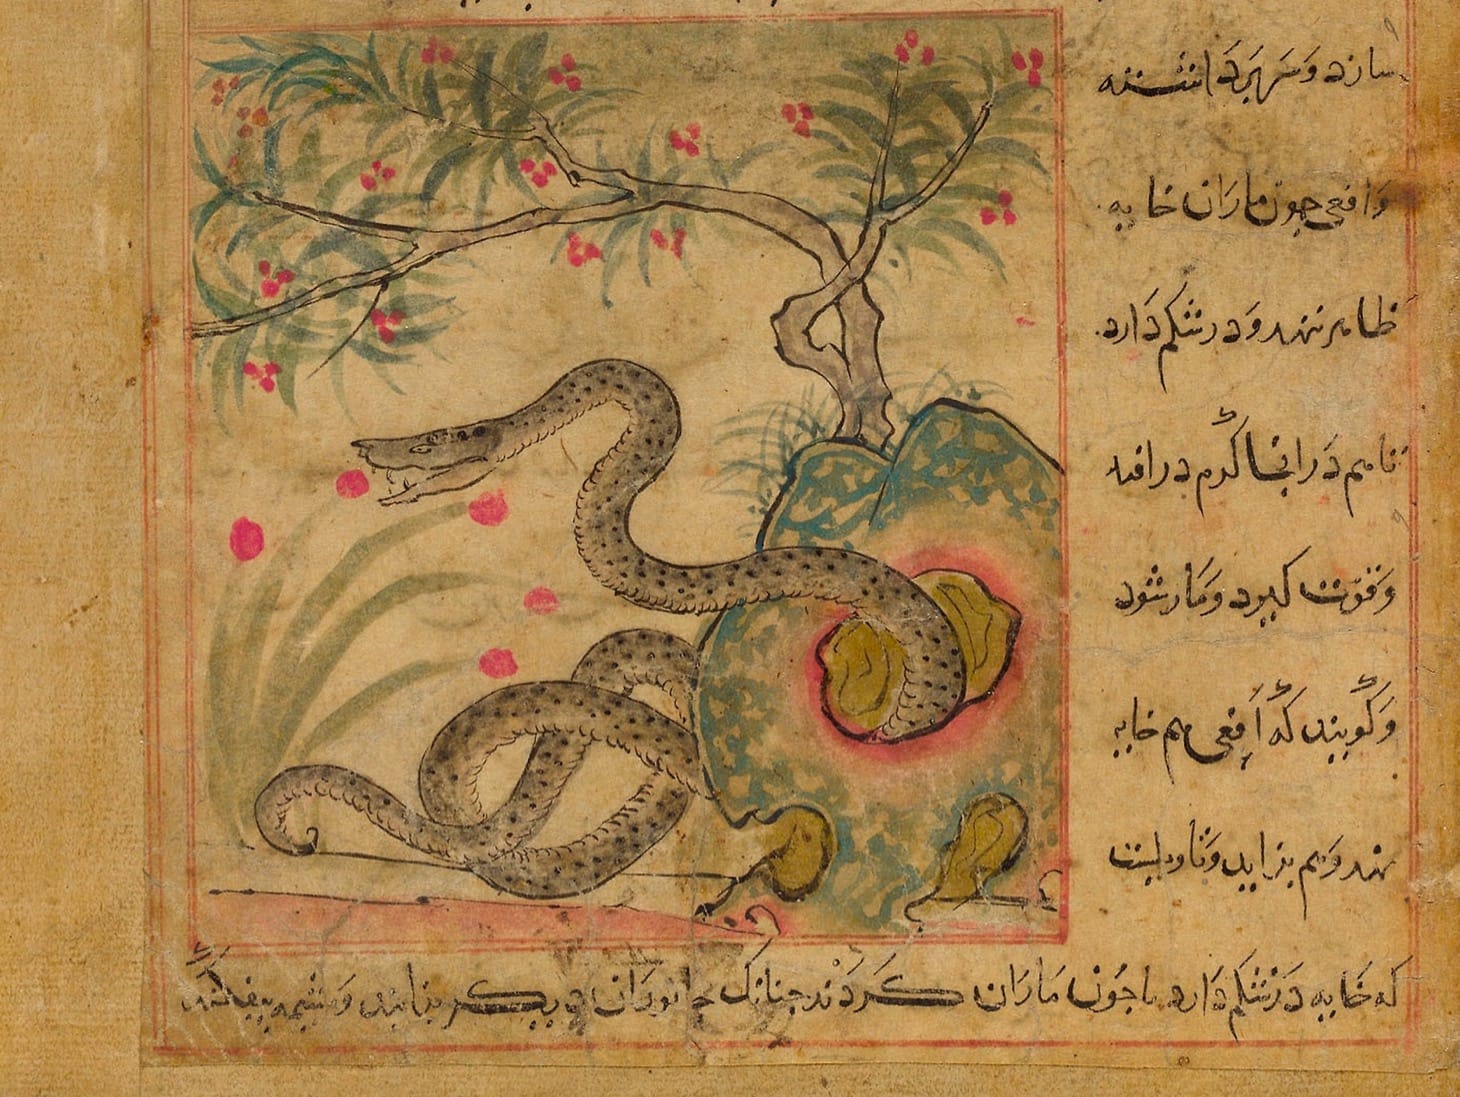 سازد و سر برداشته
و افعی چون ماران خایه
ظاهر ننهد و در شکم دارد
تا هم در انجا گرم در افتد
و قوت گیرد و مار شود
و گویند که افعی هم خایه
نهد و هم بزاید و تاویلست
که خایه در شکم دارد تا چون ماران کردند چنانک جانوران دیگر بزایند و مشیمه بیفکنند